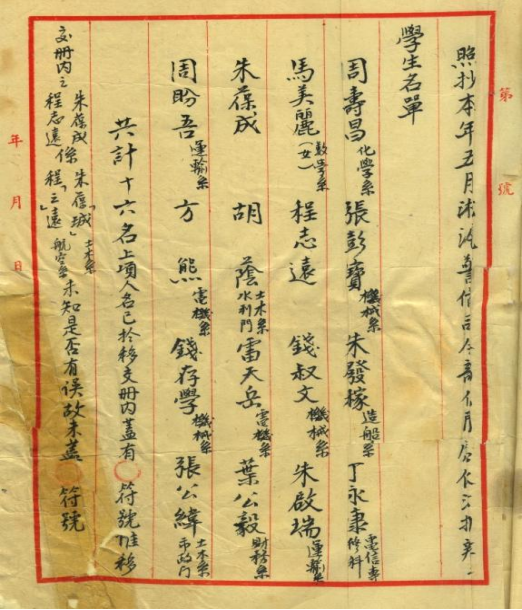 照抄本年五月淞滬警備司令部
學生名單
周壽昌化學系 張彭寶機械系 朱發稼造船系 丁永康電信專修科
馬美麗(女)數學系 程志遠 錢叔文機械系 朱啟瑞運輸系
朱葆成 胡蔭土木系水利門 雷天岳電機系 葉公毅財務系
周盼吾運輸系 方熊電機系 錢存學機械系 張公緯土木系市政門
共計十六名上項人名已於移交冊內蓋有○符號惟移
交冊內之朱葆成程志遠係朱葆「城」土木系程「之」遠航空系未知是否有誤故未蓋○符號
第 號
年 月 日